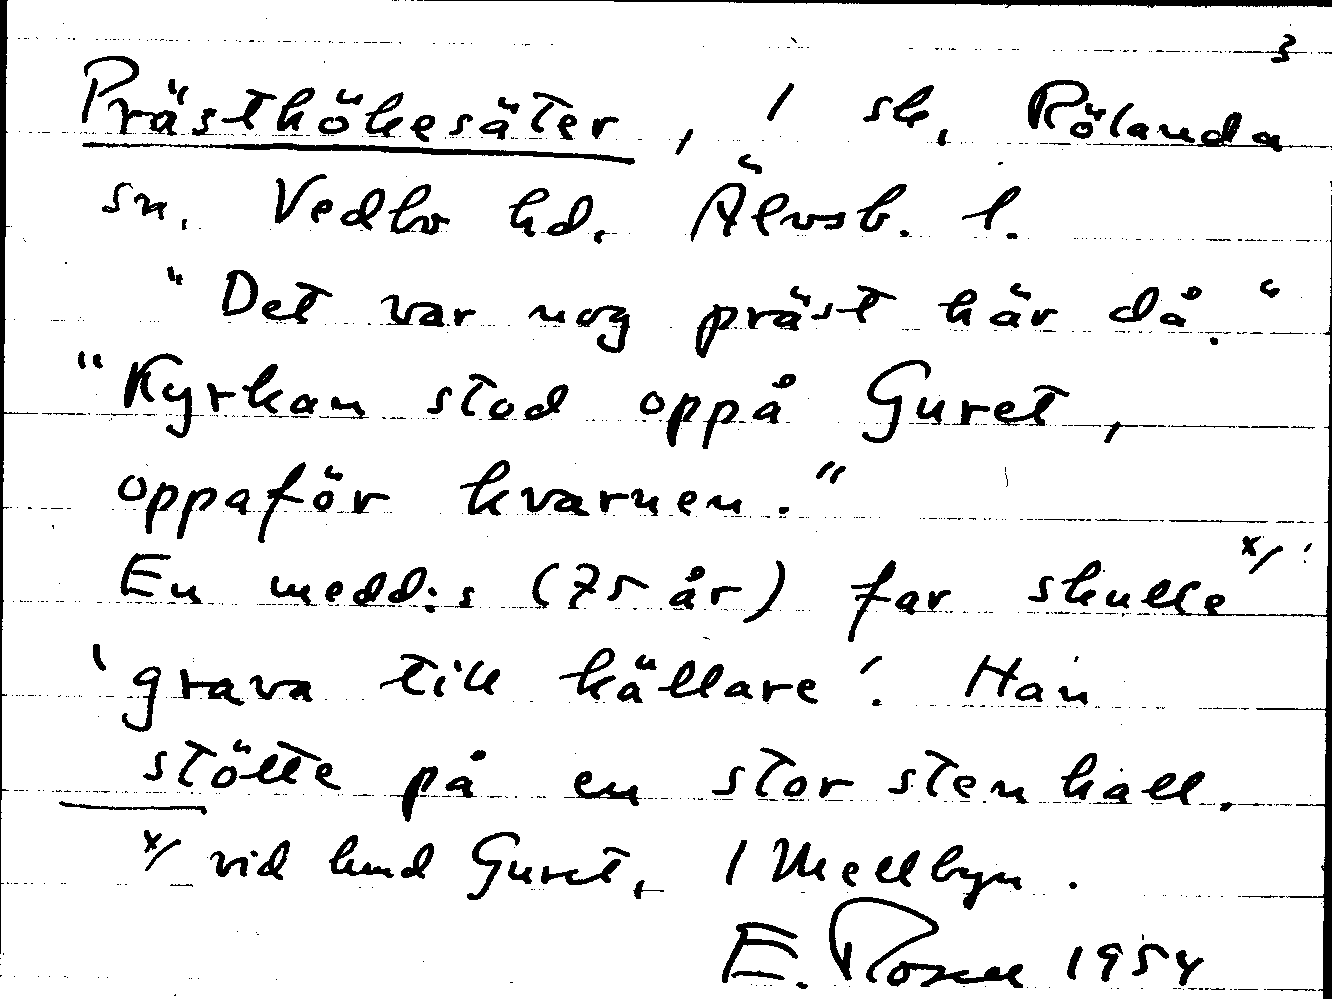 3
Prästhökesäter, / sk, Rölanda
sn. Vedbo hd. Älvsb. l.
"Det var nog präst här då."
"Kyrkan stod oppå Guret,
oppaför kvarnen."
En medd:s (75 år) far skulle x/
'grava till källare'. Han
stötte på en stor sten hall.
x/ vid Guret, 1 Mellbyn.
E. Rosell 1954